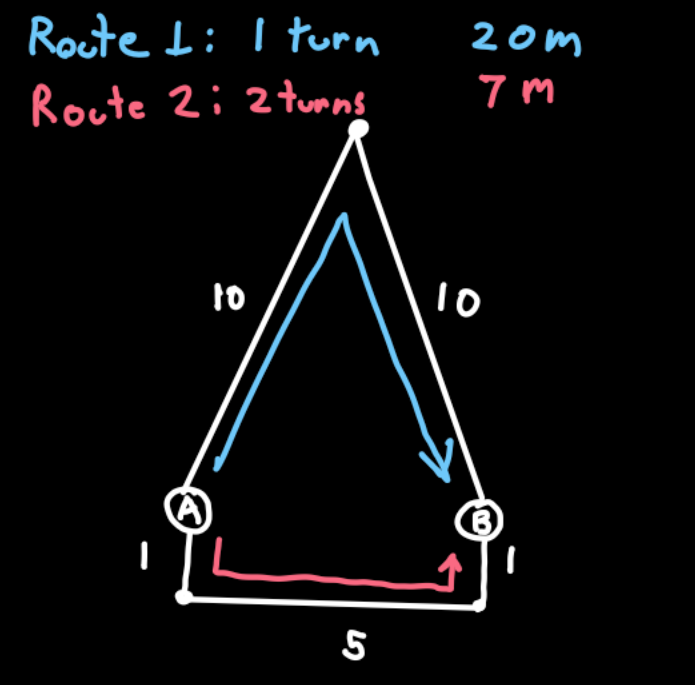 Route 1: 1 turn 20m
Route 2: 2 turns 7 m
10
10
A
B
1
1
5